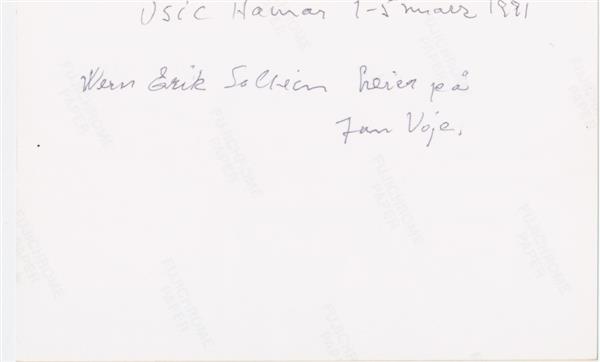 USIC Hamar 1-5 mars 1991
Erik heier på
Jan Voje.
FUJICHROME
PAPER
FUJICHROME
PAPER
FUJICHROME
PAPER
FUJICHROME
PAPER
FUJICHROME
PAPER
FUJICHROME
PAPER
FUJICHROME
PAPER
FUJICHROME
PAPER
FUJICHROME